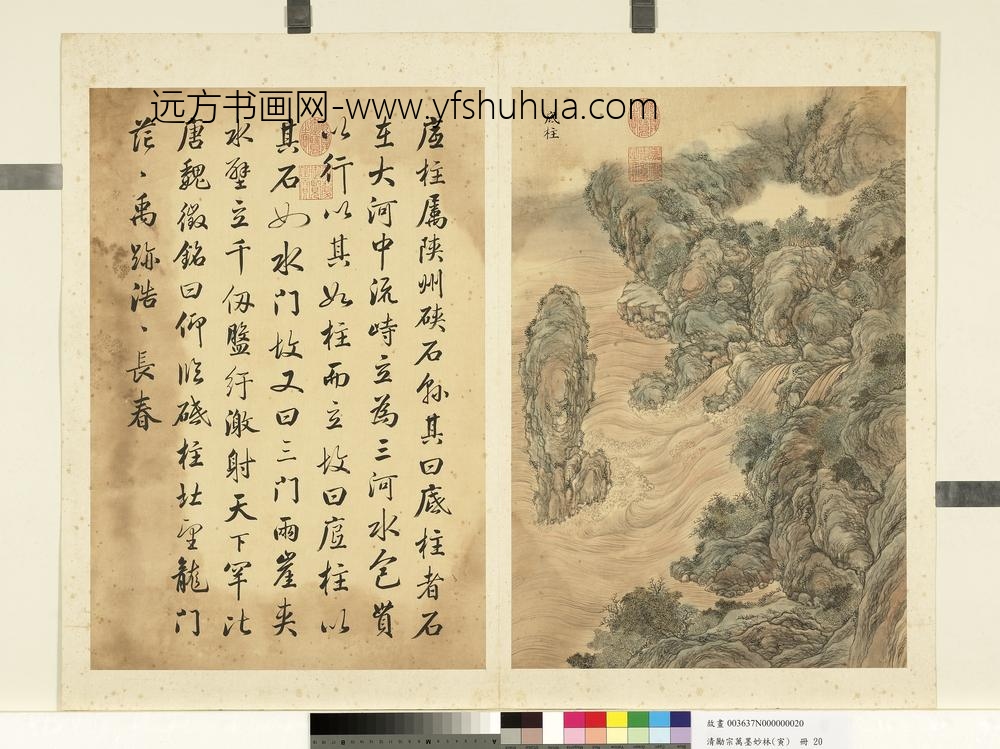 远方书画网-www.yfshuhua.com
底柱
底柱属陕州硖石縣其曰底柱者石
在大河中流峙立為三河水包貫
以行以其如柱而立故曰底柱以
其石如水門故又曰三門兩崖夹
水壁立千仞盤紆激射天下罕比
唐魏徵銘曰仰临砥柱北望龍门
茫、禹跡浩、長春
故畫 003637N000000020
清勵宗萬墨妙林(寅) 冊 20